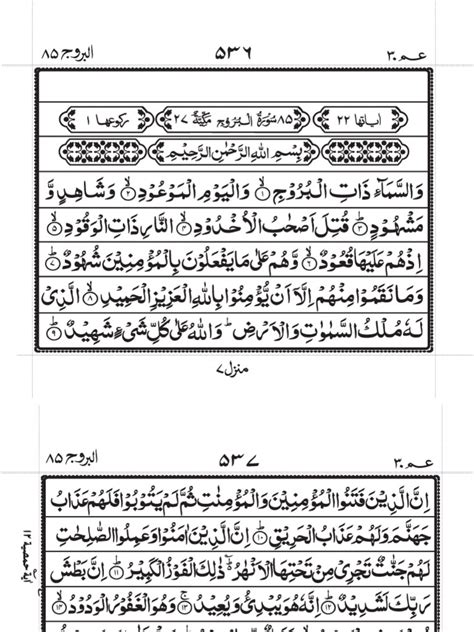 البروج ٨٥ ٥٣٦ عـم ٣٠
اٰیاتہا ٢٢ ٨٥ سُوْرَةُ الْبُرُوْجِ مَکِّیَّةٌ ٢٧ رکوعہا ١
بِسْمِ اللهِ الرَّحْمٰنِ الرَّحِیْمِ
وَالسَّمَآءِ ذَاتِ الْبُرُوْجِ ۙ‏﴿١﴾ وَالْیَوْمِ الْمَوْعُوْدِ ۙ‏﴿٢﴾ وَشَاهِدٍ وَّ
مَشْهُوْدٍ ؕ‏﴿٣﴾ قُتِلَ اَصْحٰبُ الْاُخْدُوْدِ ۙ‏﴿٤﴾ النَّارِ ذَاتِ الْوَقُوْدِ ۙ‏﴿٥﴾
اِذْ هُمْ عَلَیْهَا قُعُوْدٌ ۙ‏﴿٦﴾ وَّهُمْ عَلٰی مَا یَفْعَلُوْنَ بِالْمُؤْمِنِیْنَ شُهُوْدٌ ؕ‏﴿٧﴾
وَمَا نَقَمُوْا مِنْهُمْ اِلَّاۤ اَنْ یُّؤْمِنُوْا بِاللهِ الْعَزِیْزِ الْحَمِیْدِ ۙ‏﴿٨﴾ الَّذِیْ
لَهٗ مُلْكُ السَّمٰوٰتِ وَالْاَرْضِ ؕ وَاللهُ عَلٰی كُلِّ شَیْءٍ شَهِیْدٌ ؕ‏﴿٩﴾
منزل ٧
البروج ٨٥ ٥٣٧ عـم ٣٠
اِنَّ الَّذِیْنَ فَتَنُوا الْمُؤْمِنِیْنَ وَالْمُؤْمِنٰتِ ثُمَّ لَمْ یَتُوْبُوْا فَلَهُمْ عَذَابُ
جَهَنَّمَ وَلَهُمْ عَذَابُ الْحَرِیْقِ ؕ‏﴿١٠﴾ اِنَّ الَّذِیْنَ اٰمَنُوْا وَعَمِلُوا الصّٰلِحٰتِ
لَهُمْ جَنّٰتٌ تَجْرِیْ مِنْ تَحْتِهَا الْاَنْهٰرُ ؕ ذٰلِكَ الْفَوْزُ الْكَبِیْرُ ؕ‏﴿١١﴾ اِنَّ بَطْشَ
رَبِّكَ لَشَدِیْدٌ ؕ‏﴿١٢﴾ اِنَّهٗ هُوَ یُبْدِئُ وَیُعِیْدُ ۚ‏﴿١٣﴾ وَهُوَ الْغَفُوْرُ الْوَدُوْدُ ۙ‏﴿١٤﴾